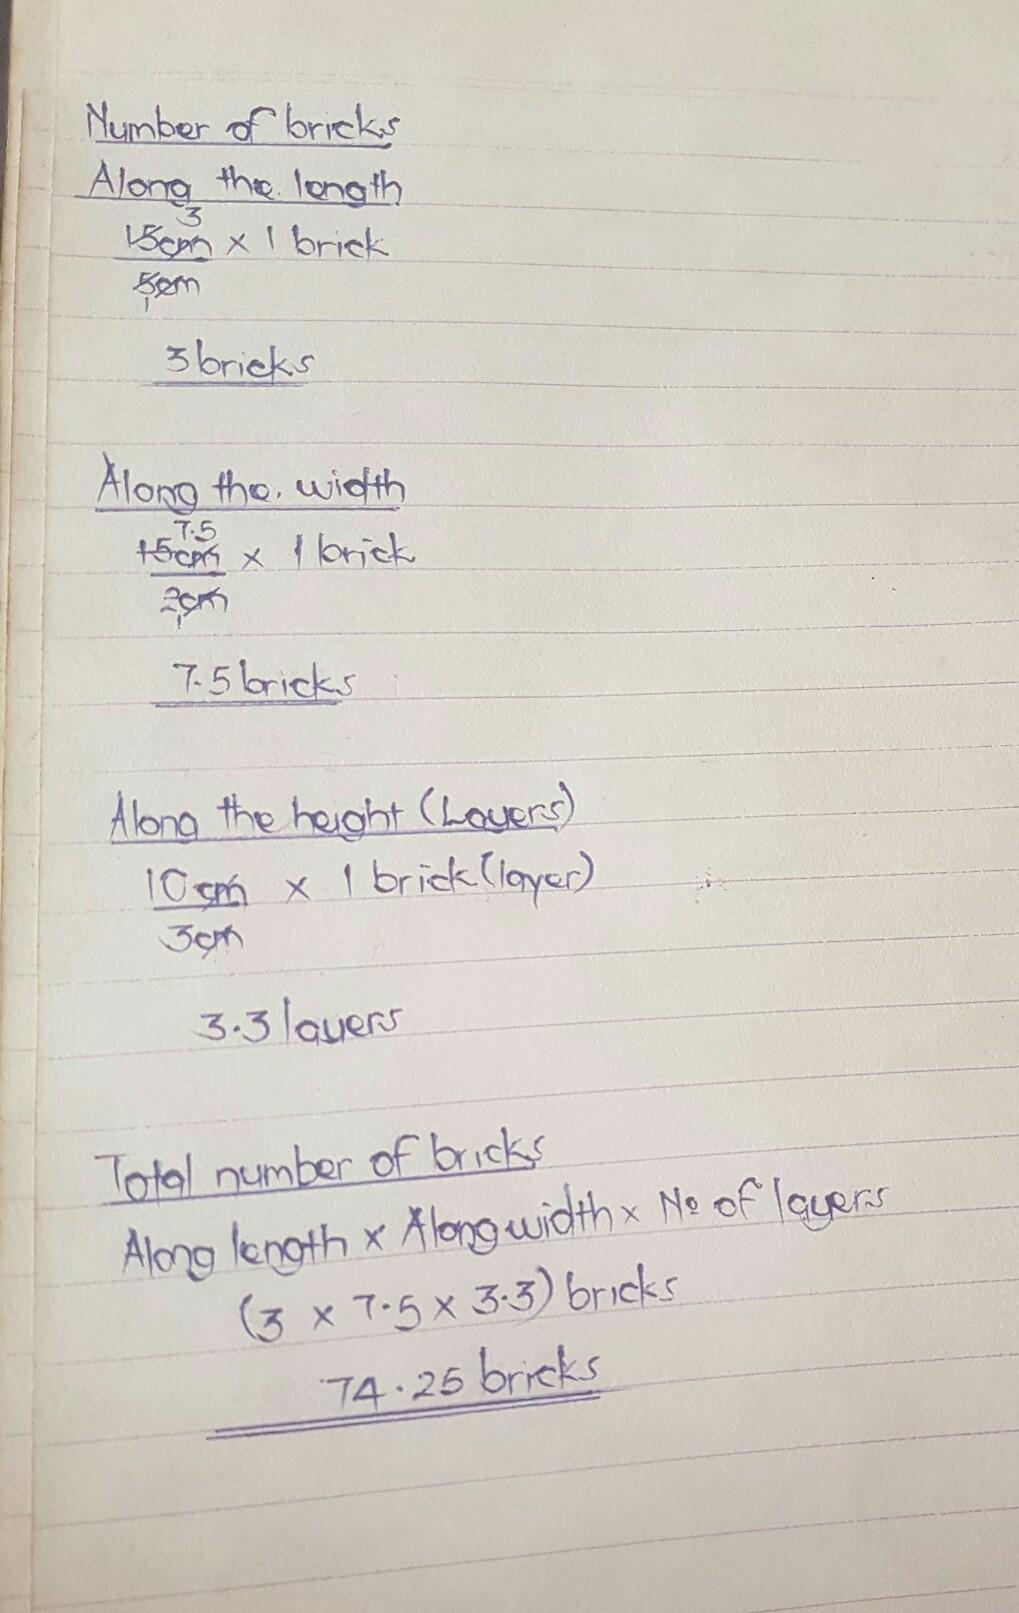 Number of bricks
Along the length
3
15cm x 1 brick
5cm
1
3 bricks
Along the width
7.5
15cm x 1 brick
2cm
1
7.5 bricks
Along the height (Layers)
10cm x 1 brick (layer)
3cm
3.3 layers
Total number of bricks
Along length x Along width x No of layers
(3 x 7.5 x 3.3) bricks
74.25 bricks